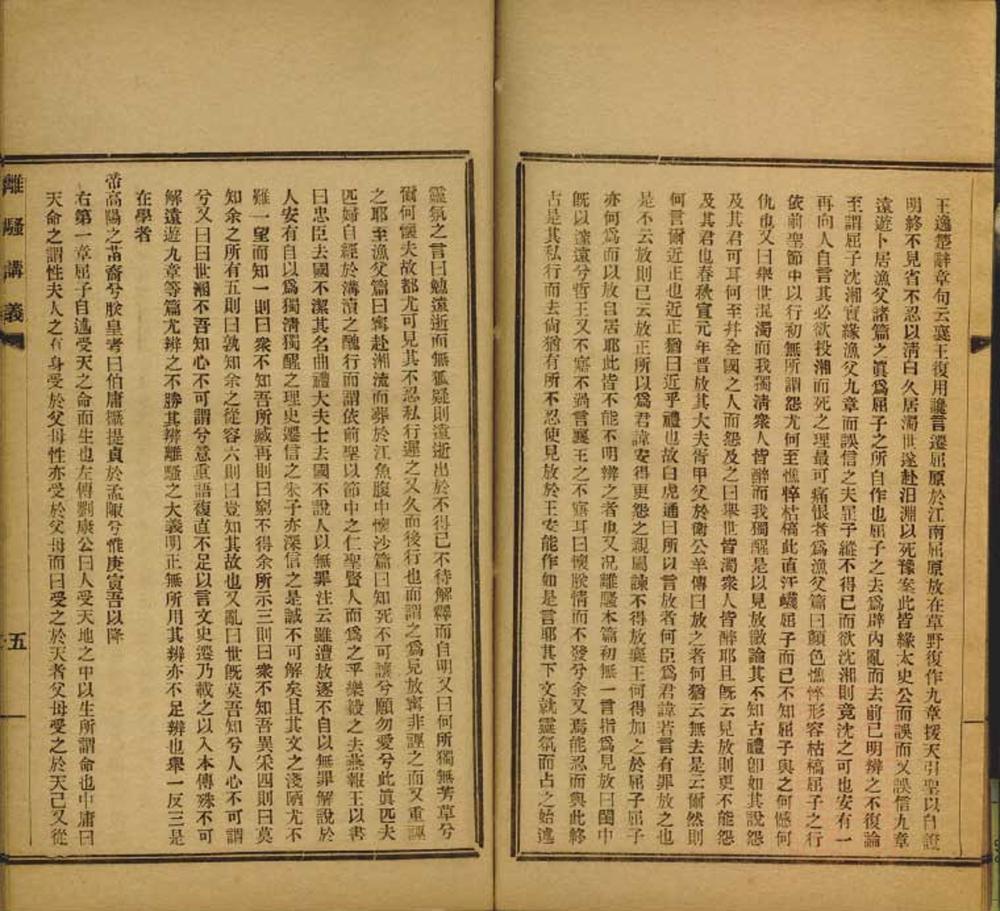 王逸楚辭章句云襄王復用讒言遷屈原於江南屈原放在草野復作九章援天引聖以自證
明終不見省不忍以清白久居濁世遂赴汨淵以死豫案此皆緣太史公而誤而又誤信九章
遠遊卜居漁父諸篇之眞爲屈子之所自作也屈子之去爲辟內亂而去前已明辨之不復論
至謂屈子沈湘實緣漁父九章而誤信之夫屈子縱不得已而欲沈湘則竟沈之可也安有一
再向人自言其必欲投湘而死之理最可痛恨者爲漁父篇曰顏色憔悴形容枯槁屈子之行
依前聖節中以行初無所謂怨尤何至憔悴枯槁此直汙衊屈子而已不知屈子與之何憾何
仇也又曰舉世混濁而我獨淸衆人皆醉而我獨醒是以見放微論其不知古禮卽如其說怨
及其君可耳何至并全國之人而怨及之曰舉世皆濁衆人皆醉耶且旣云見放則更不能怨
及其君也春秋宣元年晉放其大夫胥甲父於衛公羊傳曰放之者何猶云無去是云爾然則
何言爾近正也近正猶曰近乎禮也故白虎通曰所以言放者何臣爲君諱若言有罪放之也
是不云放則已云放正所以爲君諱安得更怨之親屬諫不得放襄王何得加之於屈子屈子
亦何爲而以放自居耶此皆不能不明辨之者也又况離騷本篇初無一言指爲見放曰閨中
旣以邃遠兮哲王又不寤不過言襄王之不寤耳曰懷朕情而不發兮余又焉能忍而與此終
古是其私行而去尙猶有所不忍使見放於王安能作如是言耶其下文就靈氛而占之始述
靈氛之言曰勉遠逝而無狐疑則遠逝出於不得已不待解釋而自明又曰何所獨無芳草兮
爾何懷夫故都尤可見其不忍私行遲之又久而後行也而謂之爲見放寗非誣之而又重誣
之耶至漁父篇曰寗赴湘流而葬於江魚腹中懷沙篇曰知死不可讓兮願勿愛兮此眞匹夫
匹婦自經於溝瀆之醜行而謂依前聖以節中之仁聖賢人而爲之乎樂毅之去燕報王以書
曰忠臣去國不潔其名曲禮大夫士去國不說人以無罪注云雖遭放逐不自以無罪解說於
人安有自以爲獨淸獨醒之理史遷信之朱子亦深信之是誠不可解矣且其文之淺陋尤不
難一望而知一則曰衆不知吾所臧再則曰窮不得余所示三則曰衆不知吾異采四則曰莫
知余之所有五則曰孰知余之從容六則曰豈知其故也又亂曰世旣莫吾知兮人心不可謂
兮又曰曰世溷不吾知心不可謂兮意重語複直不足以言文史遷乃載之以入本傳殊不可
解遠遊九章等篇尤辨之不勝其辨離騷之大義明正無所用其辨亦不足辨也舉一反三是
在學者
帝高陽之苗裔兮朕皇考曰伯庸攝提貞於孟陬兮惟庚寅吾以降
右第一章屈子自述受天之命而生也左傳劉康公曰人受天地之中以生所謂命也中庸曰
天命之謂性夫人之有身受於父母性亦受於父母而曰受之於天者父母受之於天己又從
離騷講義
五